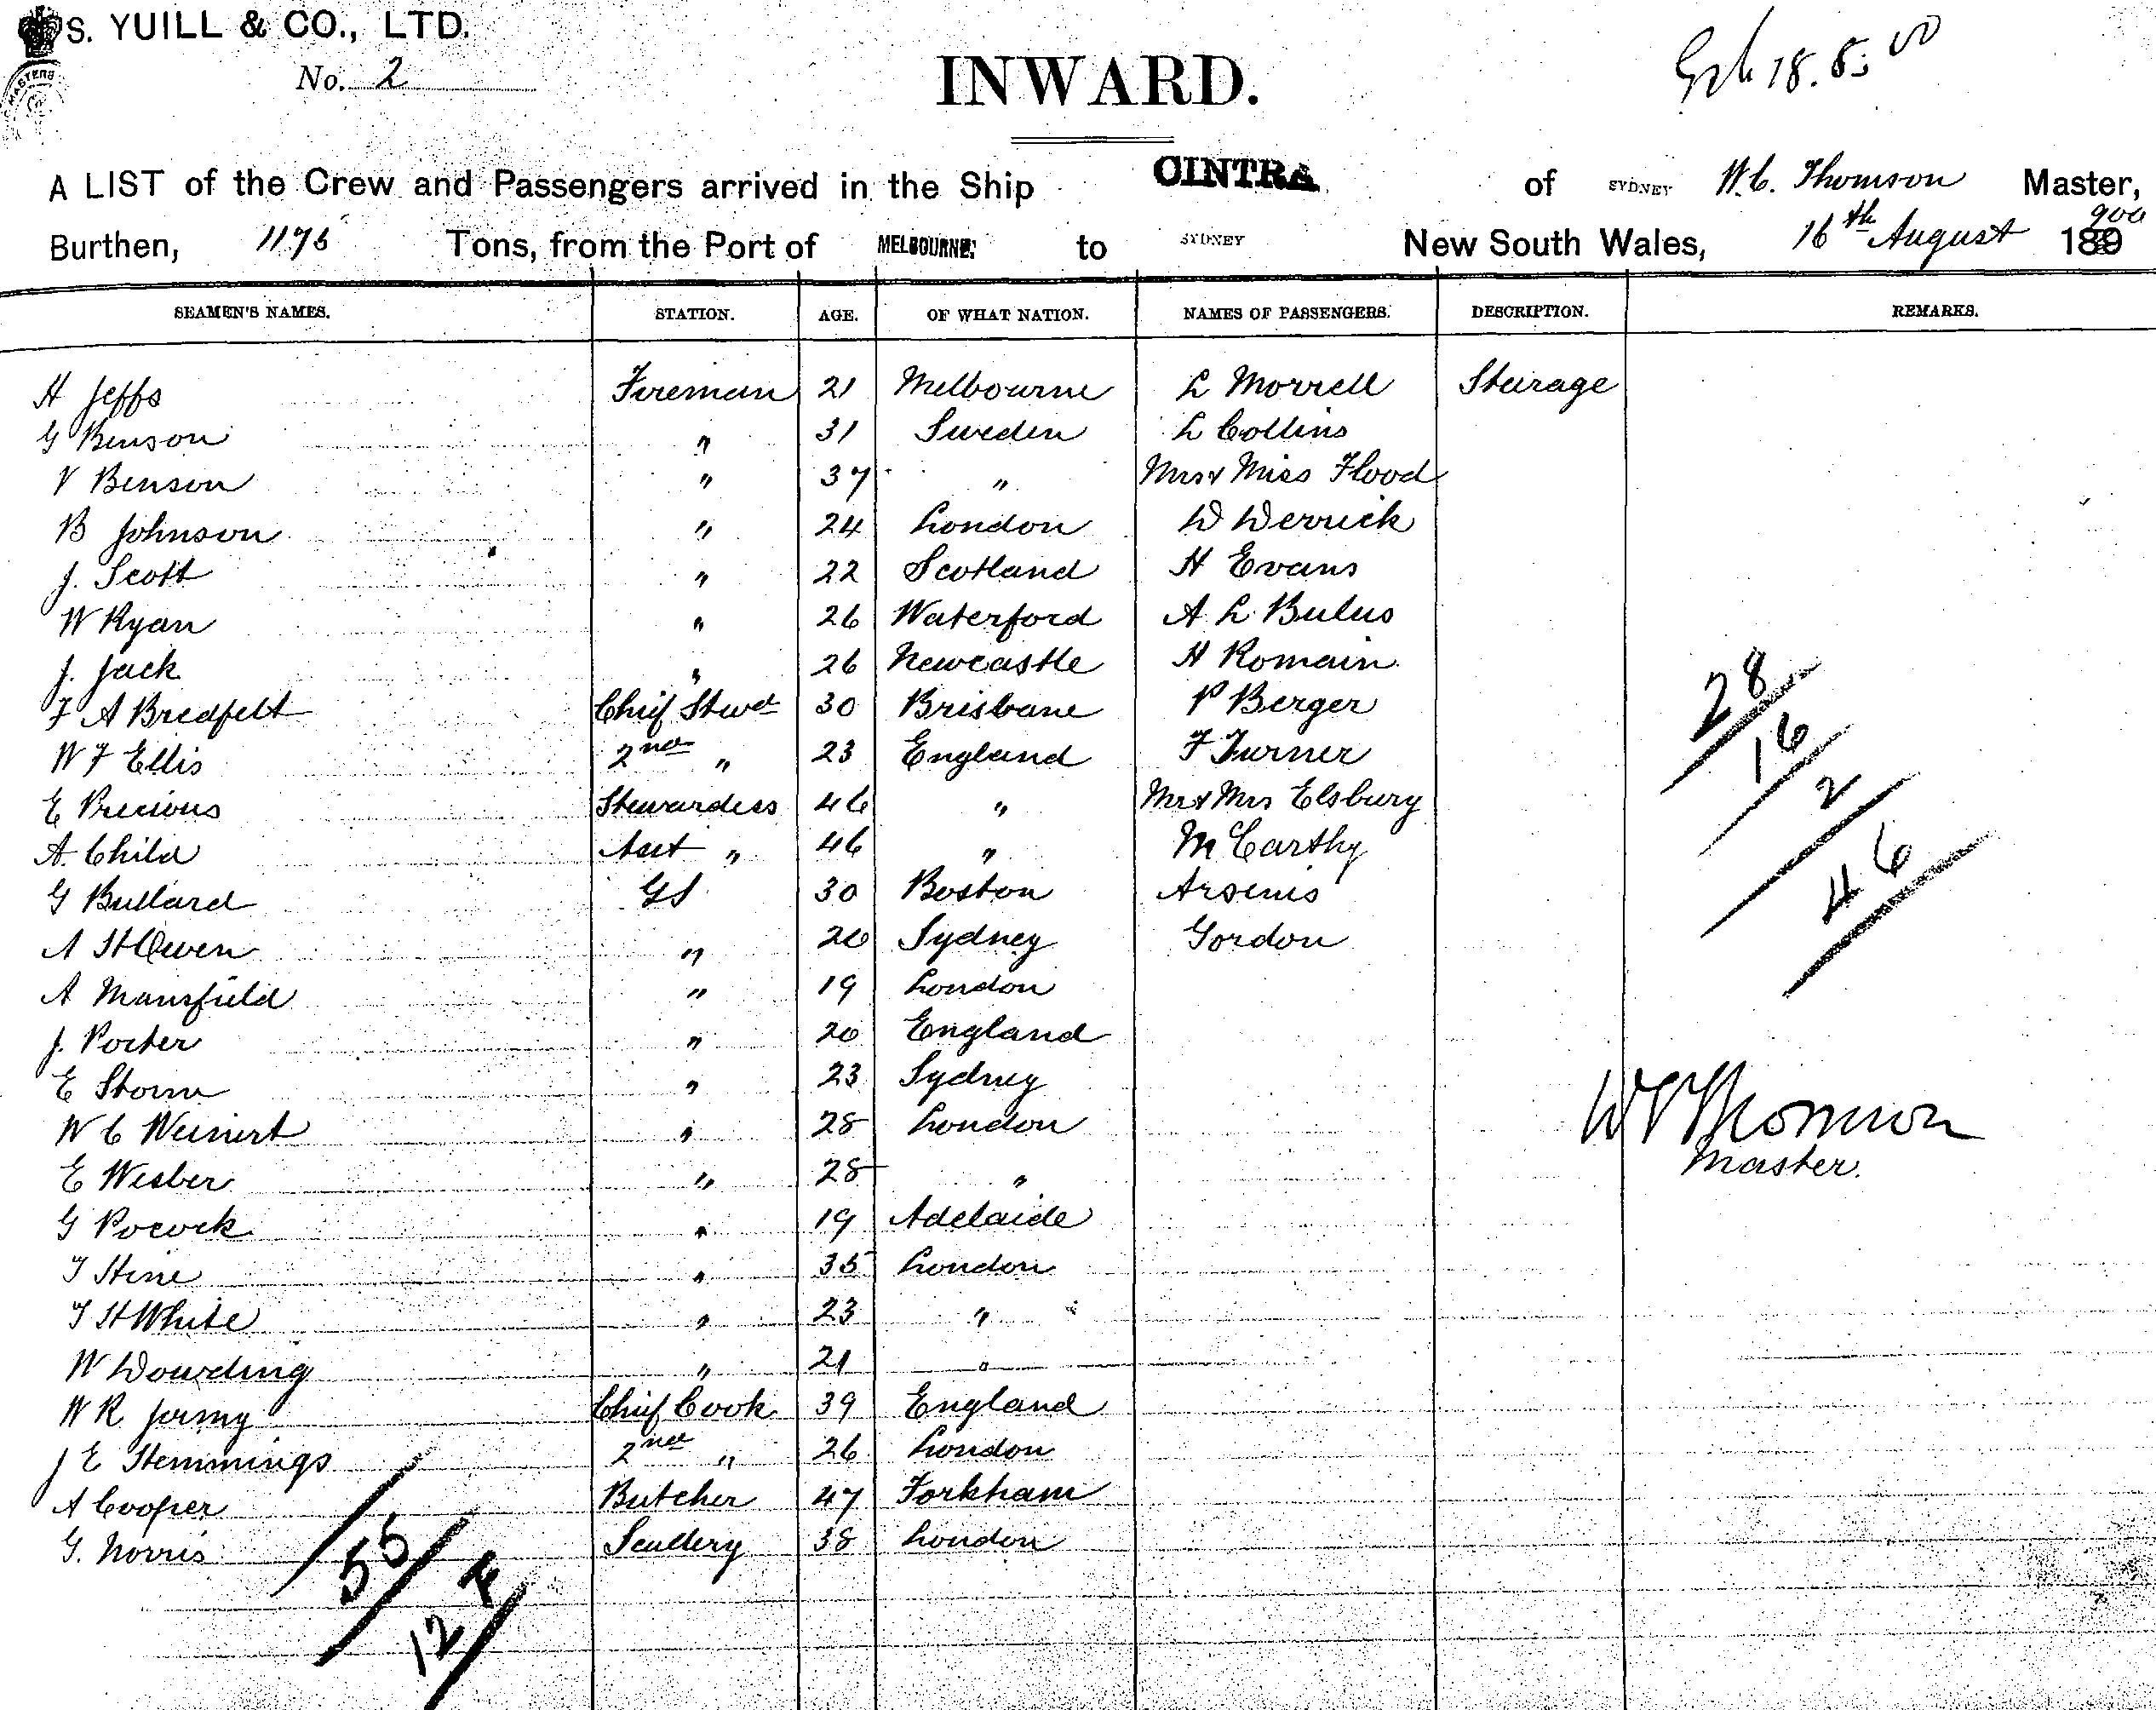 S. YUILL & CO., LTD.
No. 2
INWARD.
18.8.00
A LIST of the Crew and Passengers arrived in the Ship CINTRA of SYDNEY W.C. Thomson Master,
Burthen, 1176 Tons, from the Port of MELBOURNE, to SYDNEY New South Wales, 16th August 1900
SEAMEN'S NAMES. STATION. AGE. OF WHAT NATION. NAMES OF PASSENGERS. DESCRIPTION. REMARKS.
H Jeffs Fireman 21 Melbourne L Morrell Steirage
G Benson " 31 Sweden L Collins
V Benson " 37 " Mrs & Miss Flood
B Johnson " 24 London W Werrick
J. Scott " 22 Scotland H Evans
W Ryan " 26 Waterford A L Bulus
J. Jack " 26 Newcastle H Romain
F A Bredfelt Chief Stwd 30 Brisbane P Berger
W F Ellis 2nd " 23 England F Turner
E Precious Stewardess 46 " Mr & Mrs Elsbury
A. Child Asst " 46 " McCarthy
G Bullard GS 30 Boston Arsenis
A H Owen " 20 Sydney Gordon
A Mansfield " 19 London
J. Porter " 20 England
E Storm " 23 Sydney
W C Weinert " 28 London
E Wesber " 28 "
G Pocock " 19 Adelaide
T Hine " 35 London
T H White " 23 "
W Dowding " 21 "
W R Jermy Chief Cook 39 England
J E Hemmings 2nd " 26 London
A Cooper Butcher 47 Forkham
G. Norris Scullery 38 London
28
16
2
46
W C Thomson
Master.
55
124